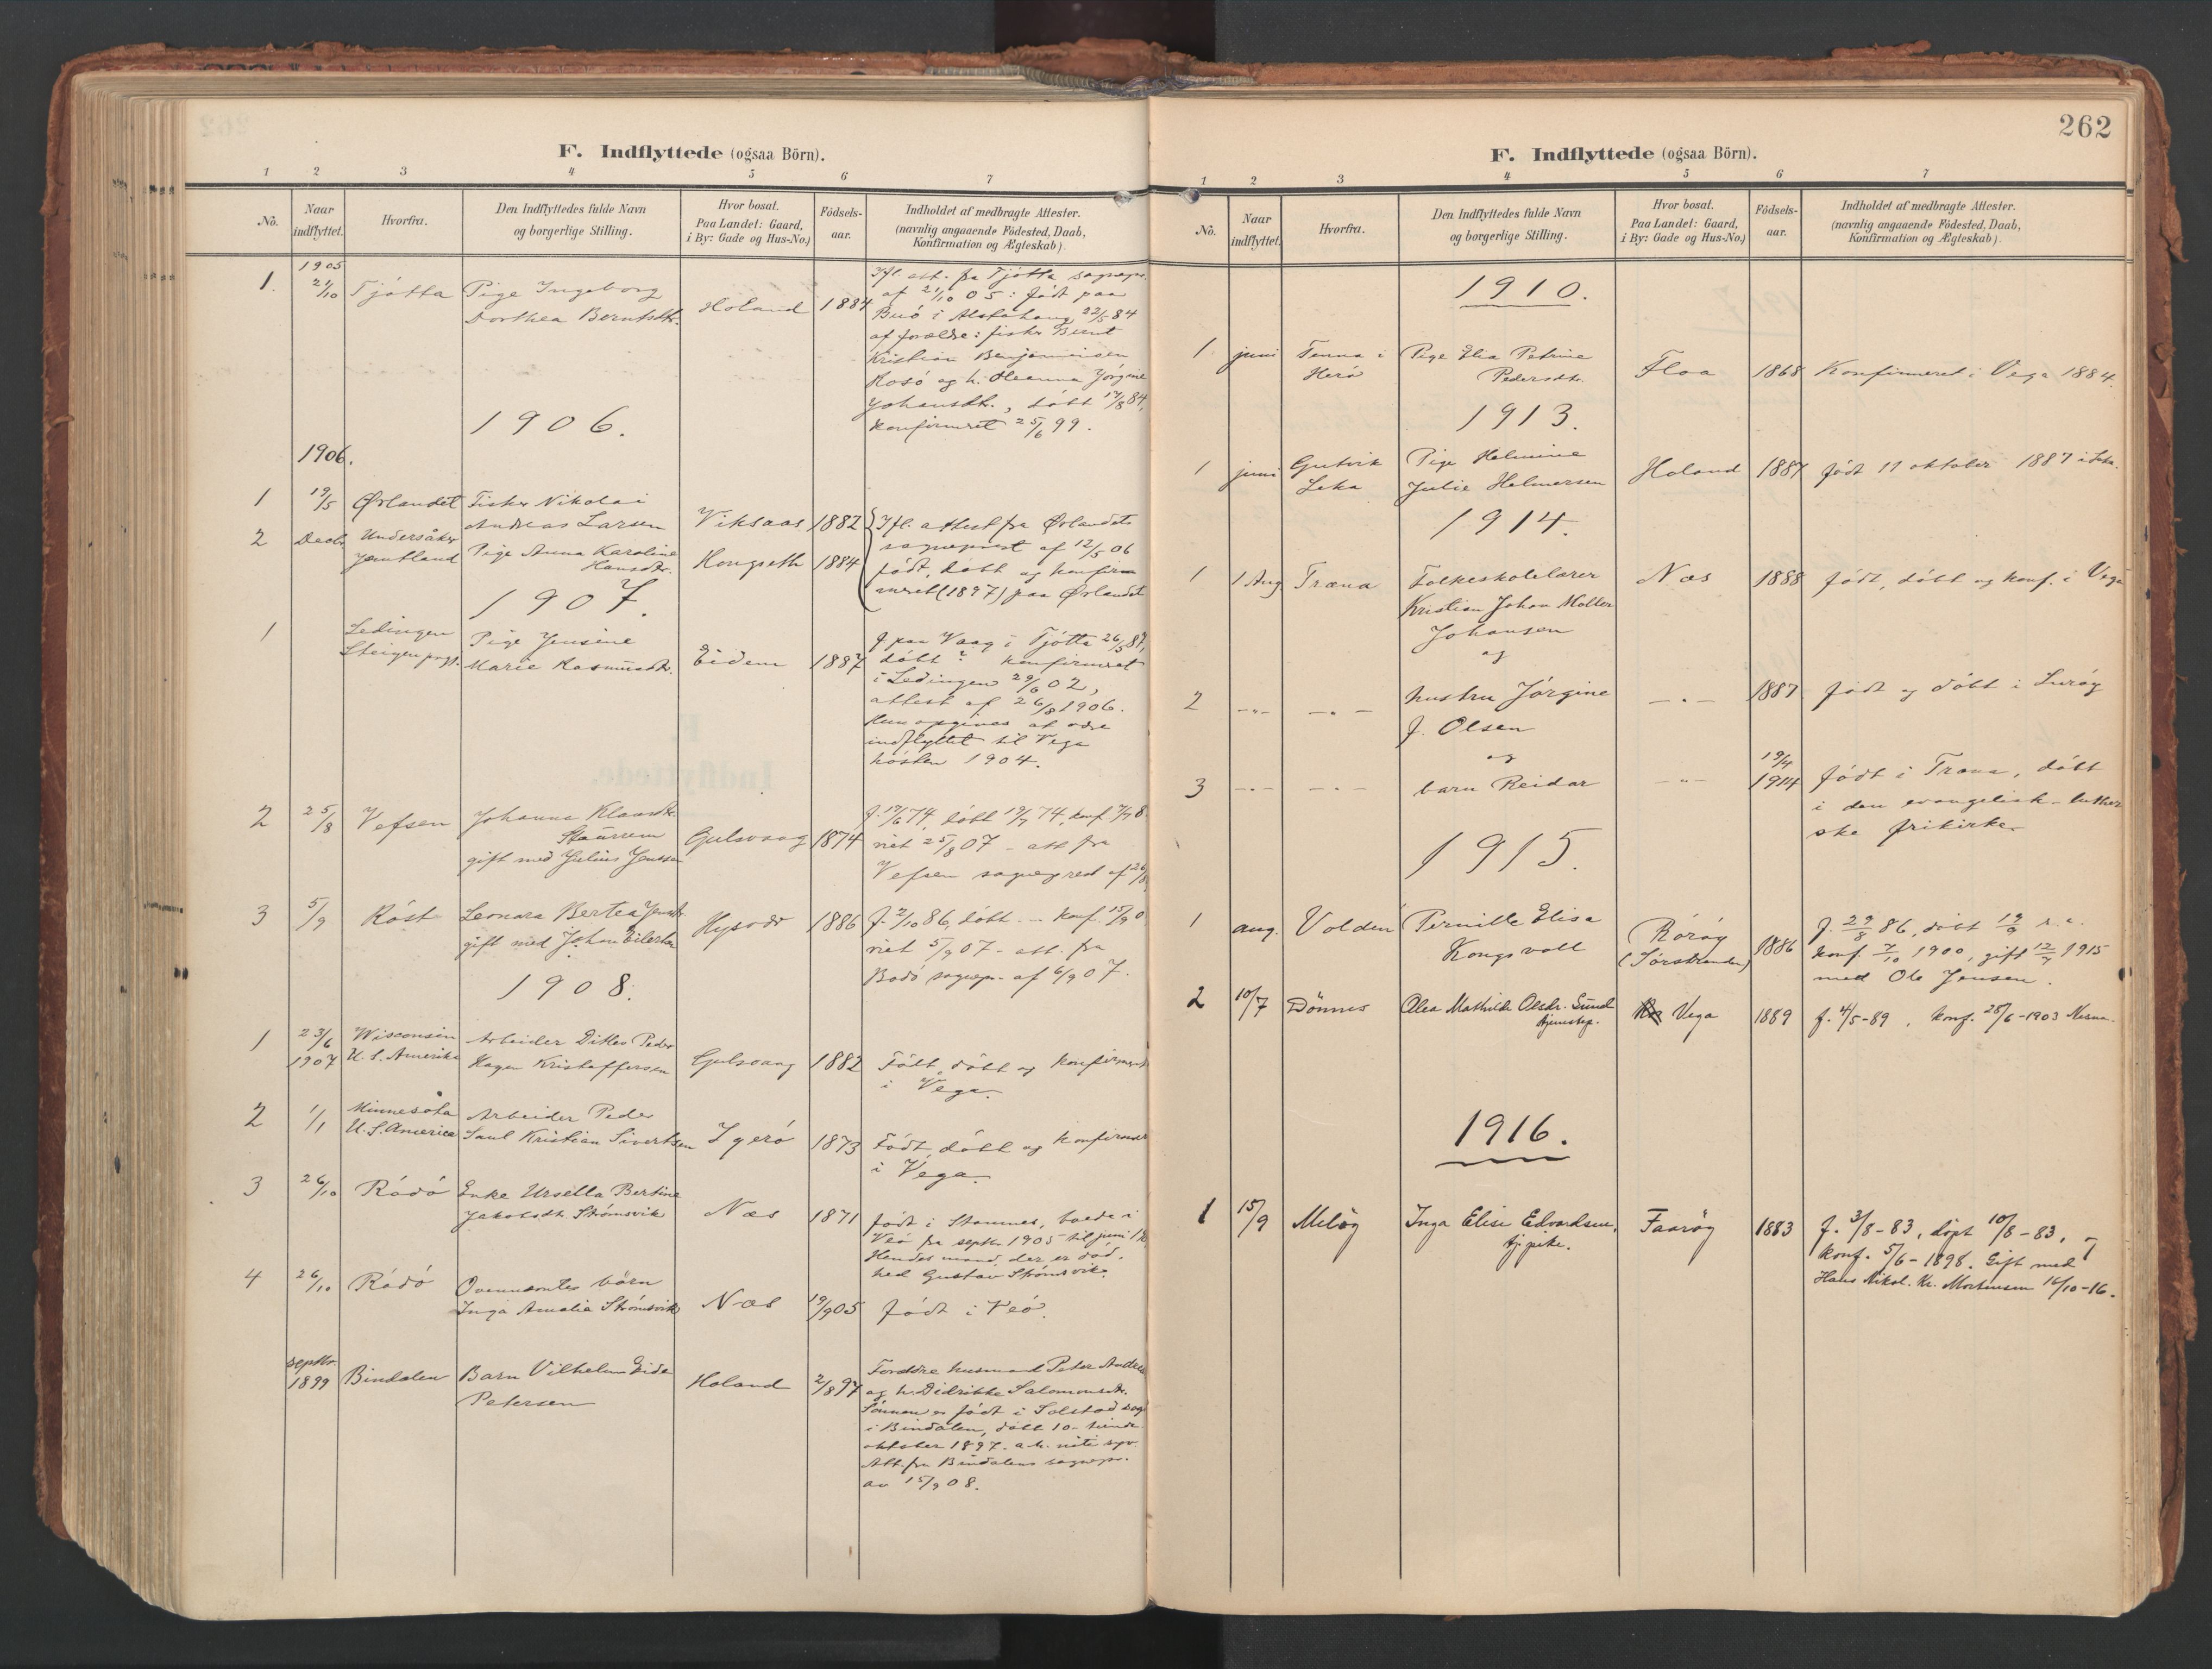 F. Indflyttede (ogsaa Börn).
1 2 3 4 5 6 7
No. Naar indflyttet. Hvorfra. Den Indflyttedes fulde Navn og borgerlige Stilling. Hvor bosat. Paa Landet: Gaard, i By: Gade og Hus-No.) Födsels-aar. Indholdet af medbragte Attester. (navnlig angaaende Födested, Daab, Konfirmation og Ægteskab).
1905
1. 21/10 Tjötta Pige Ingeborg Holand 1884 Ifl. att. fra Tjötta sognepr.
Dorthea Berntsdtr. af 21/10 05: födt paa
22/5 84
af forældre: fisker Bernt
Kristian Benjaminsen
Rosö og h. Oleanna Jörgine
Johansdt., döbt 17/8 84,
konfirmeret 25/6 99.
1906.
1906.
1 19/5 Ørlandet Fisker Nikolai Viksaas 1882 Ifl. attest fra Ørlandets
Andreas Larsen sogneprest af 12/5 06
2 Decbr Undersåker Pige Anna Karoline Hongseth 1884 födt, döbt og konfir-
Jemtland Hansdtr. meret (1897) paa Ørlandet
1907.
1 Ledingen Pige Jensine Eidem 1887 f. paa Vaag i Tjötta 26/5 87,
Steigen prgj. Marie Rasmusdt. döbt ? konfirmeret
i Ledingen 29/6 02,
attest af 26/8 1906.
Hun opgives at være
indflyttet til Vega
hösten 1904.
2 25/8 Vefsen Johanna Klausdt. Gulsvaag 1874 döbt 19/7 74,
gift med Julius Jenssen viet 25/8 07 - att. fra
Vefsen sogneprest af 26/8
3 5/9 Röst Leonora Bertea Jensdt. Hysvær 1886 f. 2/10 86, döbt - konf. 15/9 0
gift med Johan Eilertsen viet 5/9 07 - att. fra
Bodö sognepr. af 6/9 07.
1908.
1 23/6 Wisconsin Arbeider Ditlev Peder Gulsvaag 1882 Födt, döbt og konfirmeret
1907 U. S. Amerika Hagen Kristoffersen i Vega.
2 1/1 Minnesota Arbeider Peder Igerö 1873 Födt, döbt og konfirmer
U. S. America Saul Kristian Sivertsen i Vega.
3 26/10 Rödö Enke Ursella Bertine Næs 1871 födt i Stamnes, boede i
Jakobsdt. Strömsvik Veö fra septr. 1905 til juni
Hendes mand, der er död,
hed Gustav Strömsvik.
4 26/10 Rödö Ovennævntes börn Næs 19/9 05 födt i Veö.
Inga Amalia Strömsvik
septbr. 1899 Bindalen Barn Vilhelm Eide Holand 2/8 97 Forældre husmand Peter Andreas
Petersen og h. Didrikke Salomonsdt.
Sönnen er födt i Solstad sogn
i Bindalen, döbt 10- tiende
oktober 1897. a.h. niti syv.
Att. fra Bindalens sognepr.
av 15/9 08.
262
F. Indflyttede (ogsaa Börn).
1 2 3 4 5 6 7
No. Naar indflyttet. Hvorfra. Den Indflyttedes fulde Navn og borgerlige Stilling. Hvor bosat. Paa Landet: Gaard, i By: Gade og Hus-No.) Födsels-aar. Indholdet af medbragte Attester. (navnlig angaaende Födested, Daab, Konfirmation og Ægteskab).
1910.
1 juni Tenna i Pige Elia Petrine Floa 1868 Konfirmeret i Vega 1884.
Herö Pedersdt.
1913.
1 juni Gutvik Pige Helmine Holand 1887 födt 11 oktober 1887 i Leka.
Leka Julie Helmersen
1914.
1 1 Aug Træna Folkeskolelærer Næs 1888 födt, döbt og konf. i Vega
Kristian Johan Moller
Johansen
og
2 -"- -"- hustru Jörgine -"- 1887 födt og döbt i Luröy
J. Olsen
og
3 -"- -"- barn Reidar -"- 19/4 1914 födt i Træna, döbt
i den evangelisk-luther
ske frikirke
1915.
1 aug. Volden Pernille Elisa Röröy 1886 f. 29/8 86, döbt 19/9 s.a.
Kongsvoll (Sörstranden) konf. 7/10 1900, gift 12/7 1915
med Ole Jensen.
2 10/7 Dönnes Olea Mathilde Olsdr. Sund Vega 1889 f. 4/5-89, konf. 28/6-1903 Nesna.
tjenestep.
1916.
1 15/9 Melöy Inga Elise Edvardsen, Faaröy 1883 f. 3/8-83, döpt 10/8-83,
tj. pike. konf. 5/6-1898. Gift med
Hans Nikol. Kr. Mortensen 16/10-16.